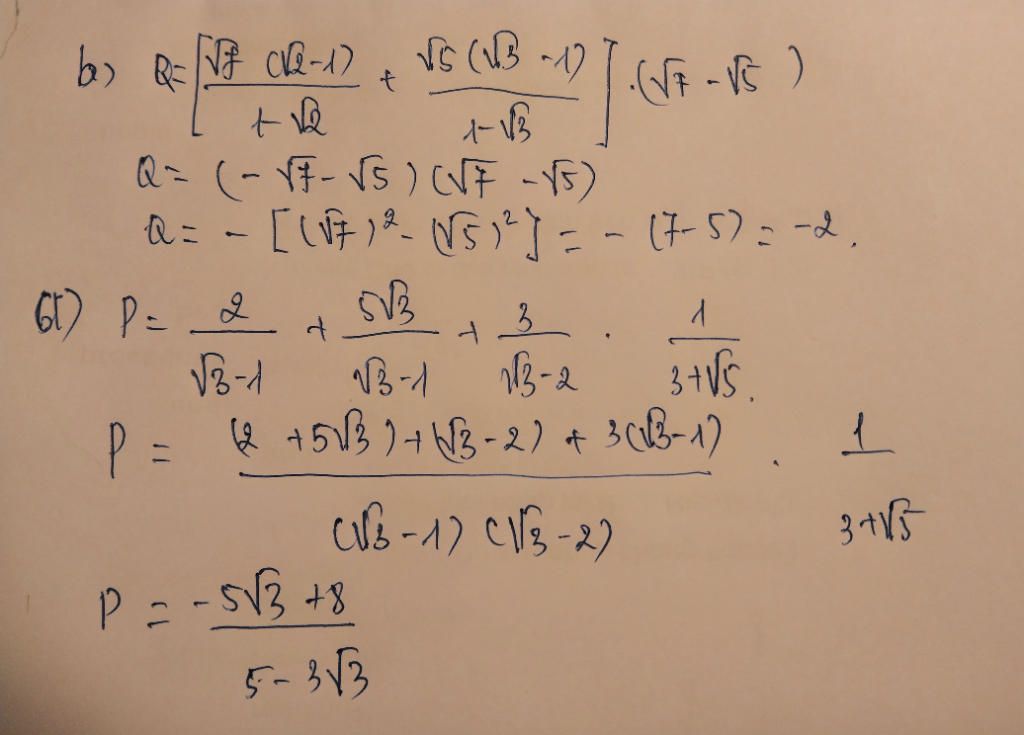 b) Q = [√7 (√2-1) / 1-√2 + √5 (√3 -1) / 1-√3] . (√7 - √5)
Q = (- √7 - √5) (√7 - √5)
Q = - [(√7)² - (√5)²] = - (7-5) = -2.
P = 2 / √3-1 + 5√3 / √3-1 + 3 / √3-2 . 1 / 3+√5.
P = (2 +5√3) + (√3-2) + 3(√3-1) / (√3-1) (√3-2) . 1 / 3+√5
P = -5√3 +8 / 5-3√3